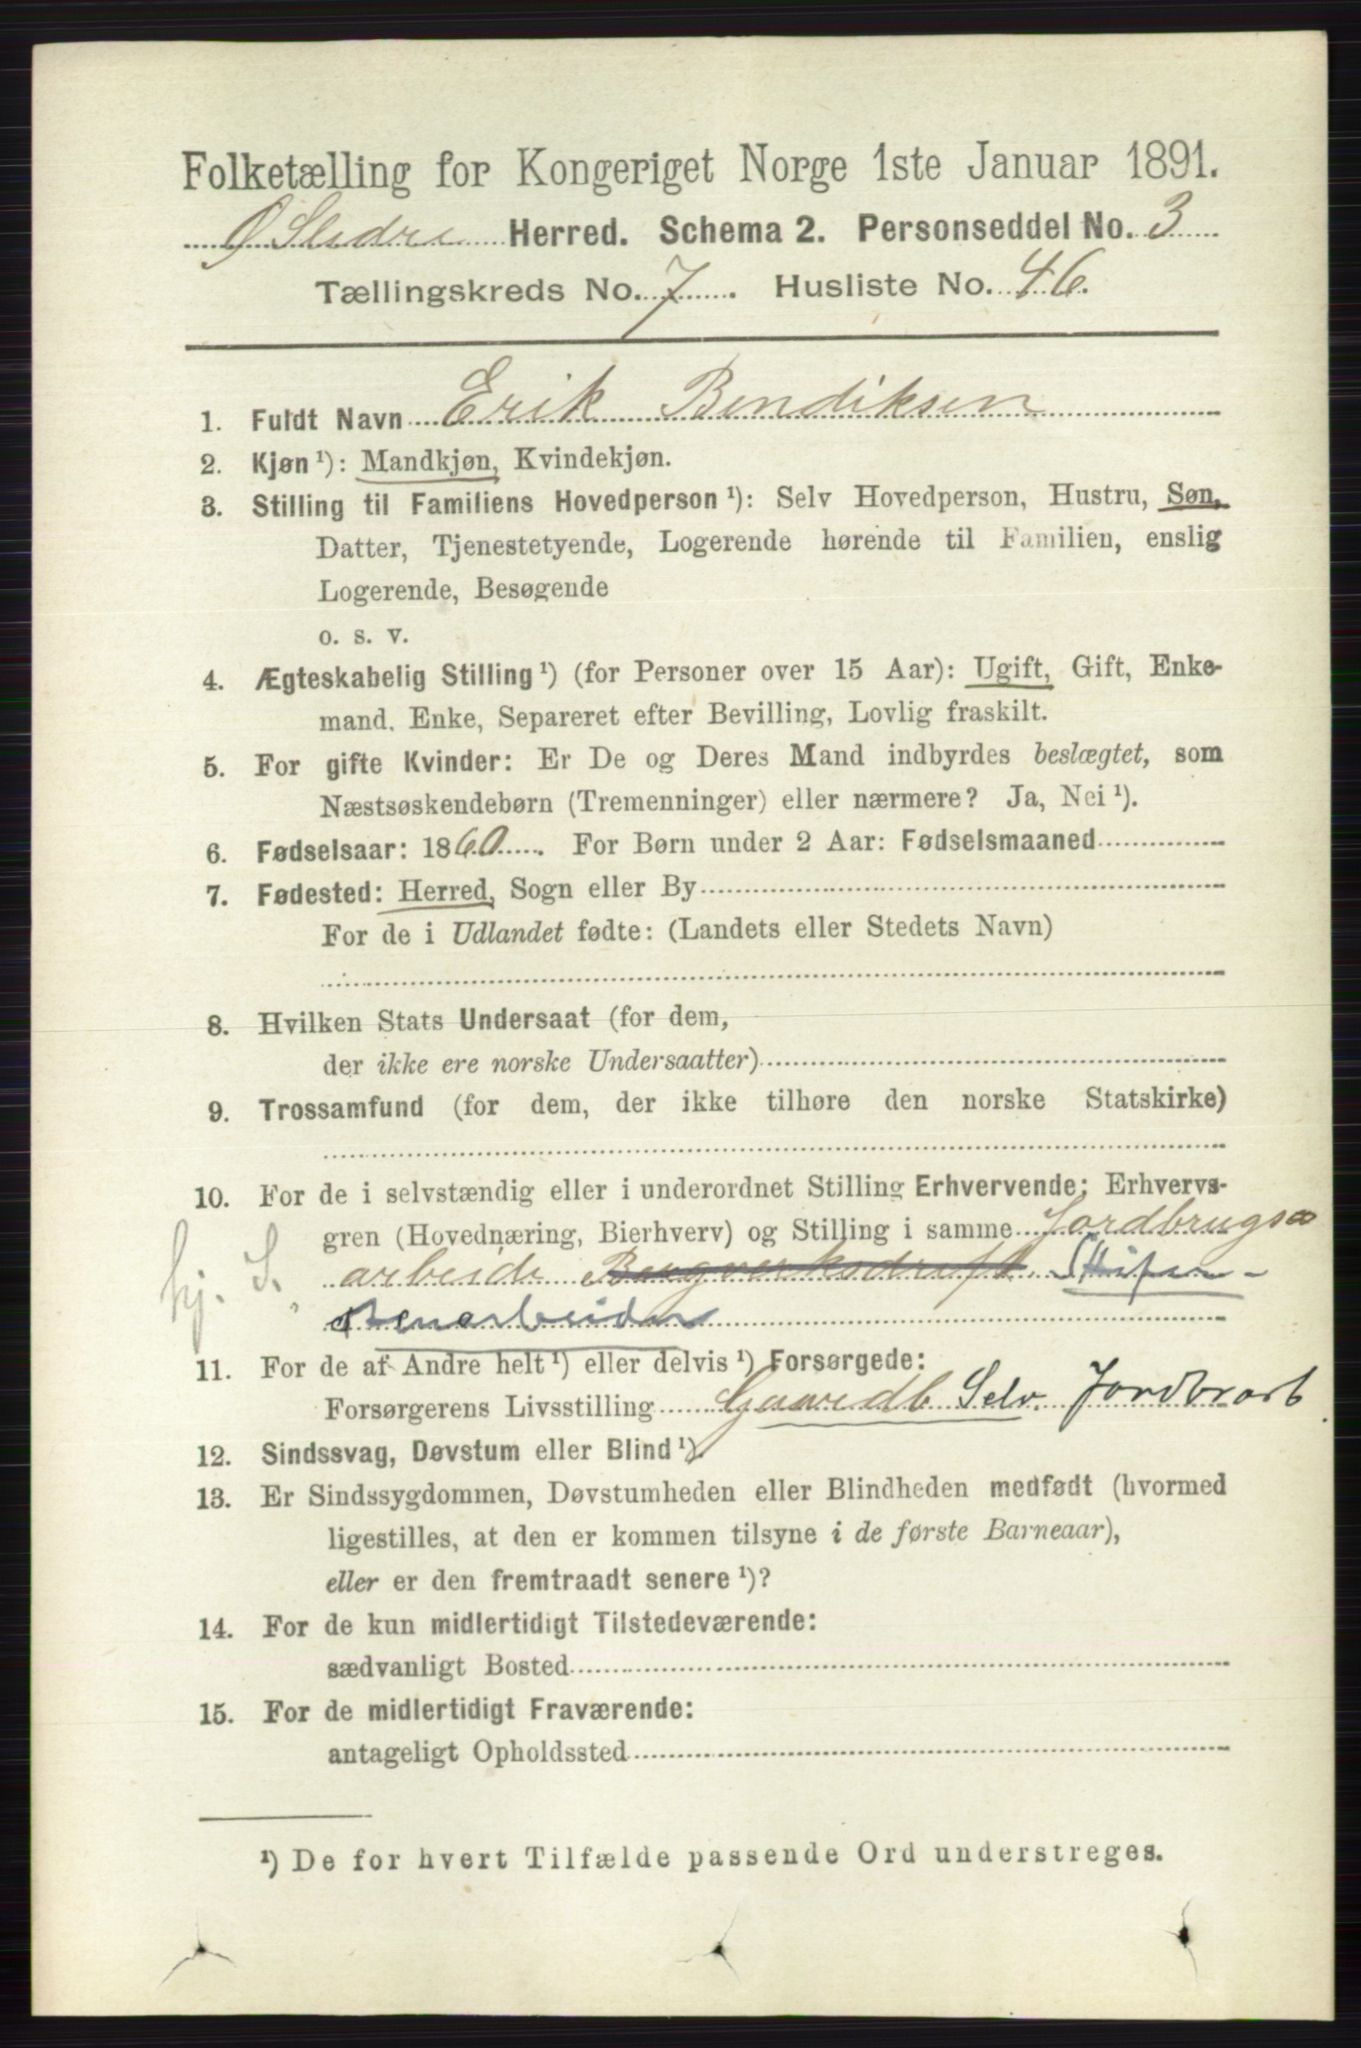 Folketælling for Kongeriget Norge 1ste Januar 1891.
Ø Slidre Herred. Schema 2. Personseddel No. 3
Tællingskreds No. 7. Husliste No. 46.
1. Fuldt Navn Erik Bendiksen
2. Kjøn ¹): Mandkjøn, Kvindekjøn.
3. Stilling til Familiens Hovedperson ¹): Selv Hovedperson, Hustru, Søn,
Datter, Tjenestetyende, Logerende hørende til Familien, enslig
Logerende, Besøgende
o. s. v.
4. Ægteskabelig Stilling ¹) (for Personer over 15 Aar): Ugift, Gift, Enke-
mand, Enke, Separeret efter Bevilling, Lovlig fraskilt.
5. For gifte Kvinder: Er De og Deres Mand indbyrdes beslægtet, som
Næstsøskendebørn (Tremenninger) eller nærmere? Ja, Nei ¹).
6. Fødselsaar: 1860. For Børn under 2 Aar: Fødselsmaaned
7. Fødested: Herred, Sogn eller By
For de i Udlandet fødte: (Landets eller Stedets Navn)
8. Hvilken Stats Undersaat (for dem,
der ikke ere norske Undersaatter)
9. Trossamfund (for dem, der ikke tilhøre den norske Statskirke)
10. For de i selvstændig eller i underordnet Stilling Erhvervende: Erhvervs-
gren (Hovednæring, Bierhverv) og Stilling i samme Jordbrugs
hj. S. arbeide Bergverksdrift. Skifer-
stenarbeider
11. For de af Andre helt ¹) eller delvis ¹) Forsørgede:
Forsørgerens Livsstilling Gaardb Selv. Jordbrarb
12. Sindssvag, Døvstum eller Blind ¹).
13. Er Sindssygdommen, Døvstumheden eller Blindheden medfødt (hvormed
ligestilles, at den er kommen tilsyne i de første Barneaar),
eller er den fremtraadt senere ¹)?
14. For de kun midlertidigt Tilstedeværende:
sædvanligt Bosted
15. For de midlertidigt Fraværende:
antageligt Opholdssted
¹) De for hvert Tilfælde passende Ord understreges.